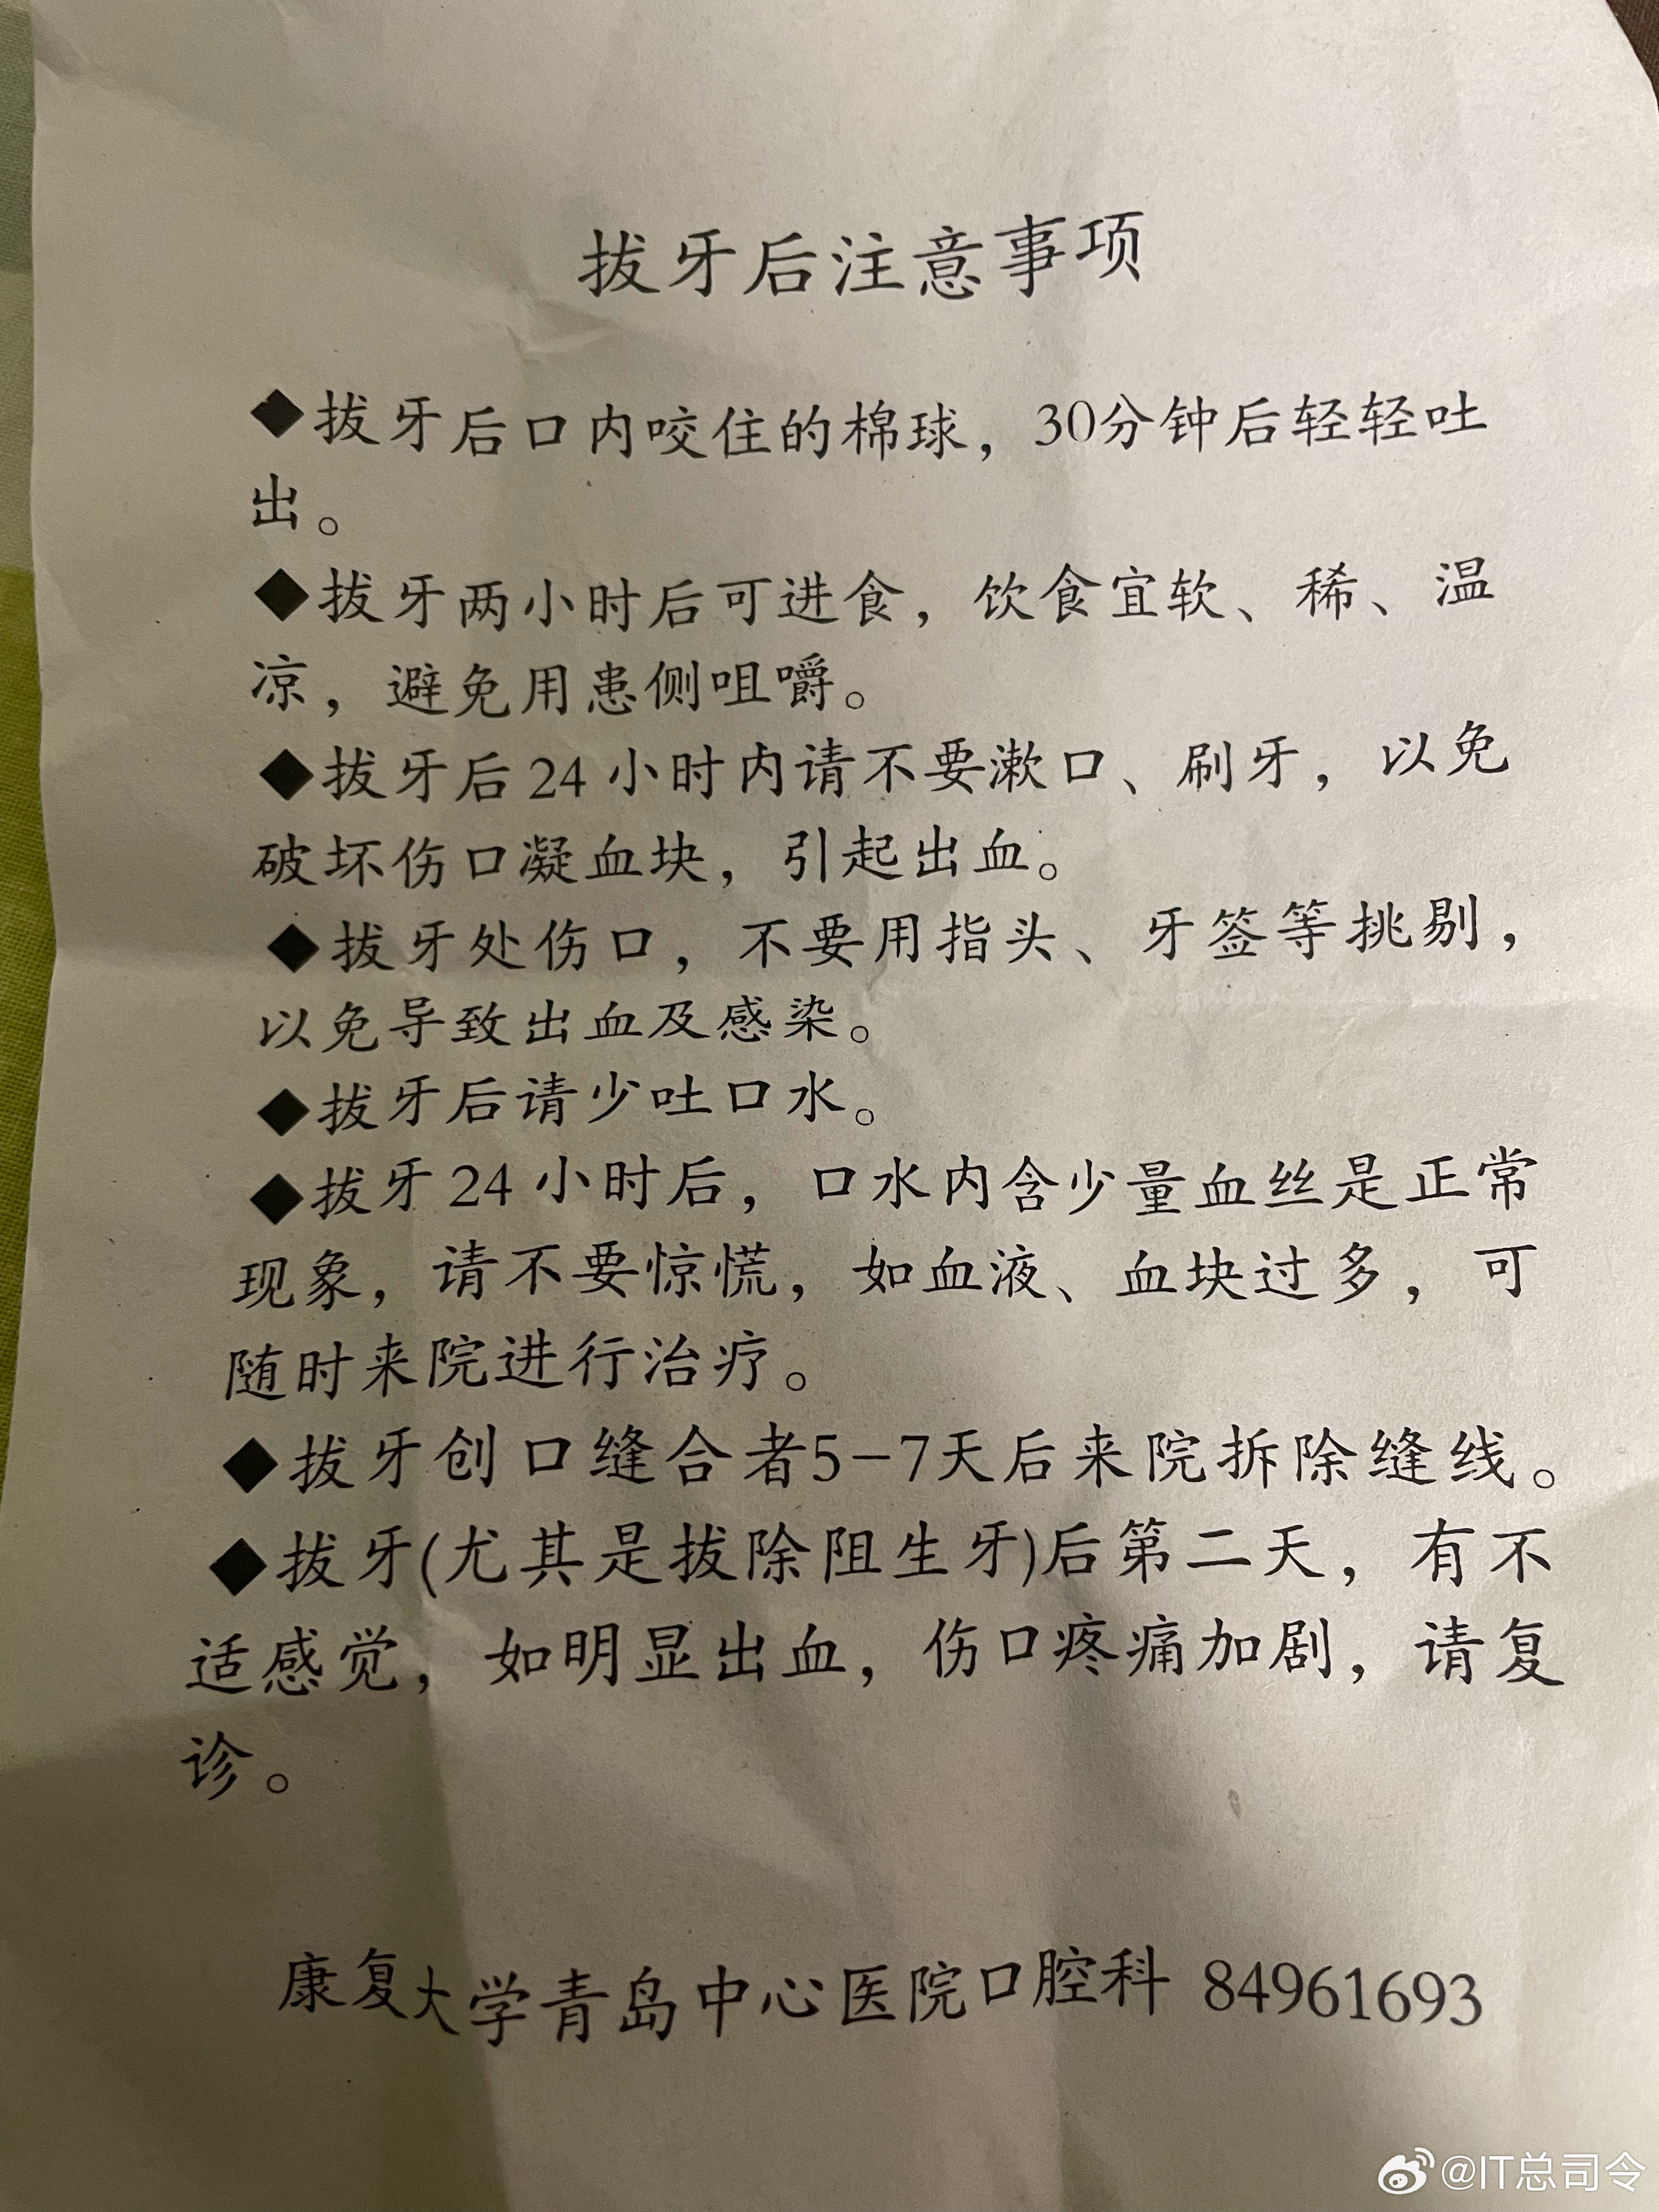 拔牙后注意事项
◆拔牙后口内咬住的棉球，30分钟后轻轻吐
出。
◆拔牙两小时后可进食，饮食宜软、稀、温
凉，避免用患侧咀嚼。
◆拔牙后24小时内请不要漱口、刷牙，以免
破坏伤口凝血块，引起出血。
◆拔牙处伤口，不要用指头、牙签等挑剔，
以免导致出血及感染。
◆拔牙后请少吐口水。
◆拔牙24小时后，口水内含少量血丝是正常
现象，请不要惊慌，如血液、血块过多，可
随时来院进行治疗。
◆拔牙创口缝合者5-7天后来院拆除缝线。
◆拔牙(尤其是拔除阻生牙)后第二天，有不
适感觉，如明显出血，伤口疼痛加剧，请复
诊。
康复大学青岛中心医院口腔科 84961693
@IT总司令